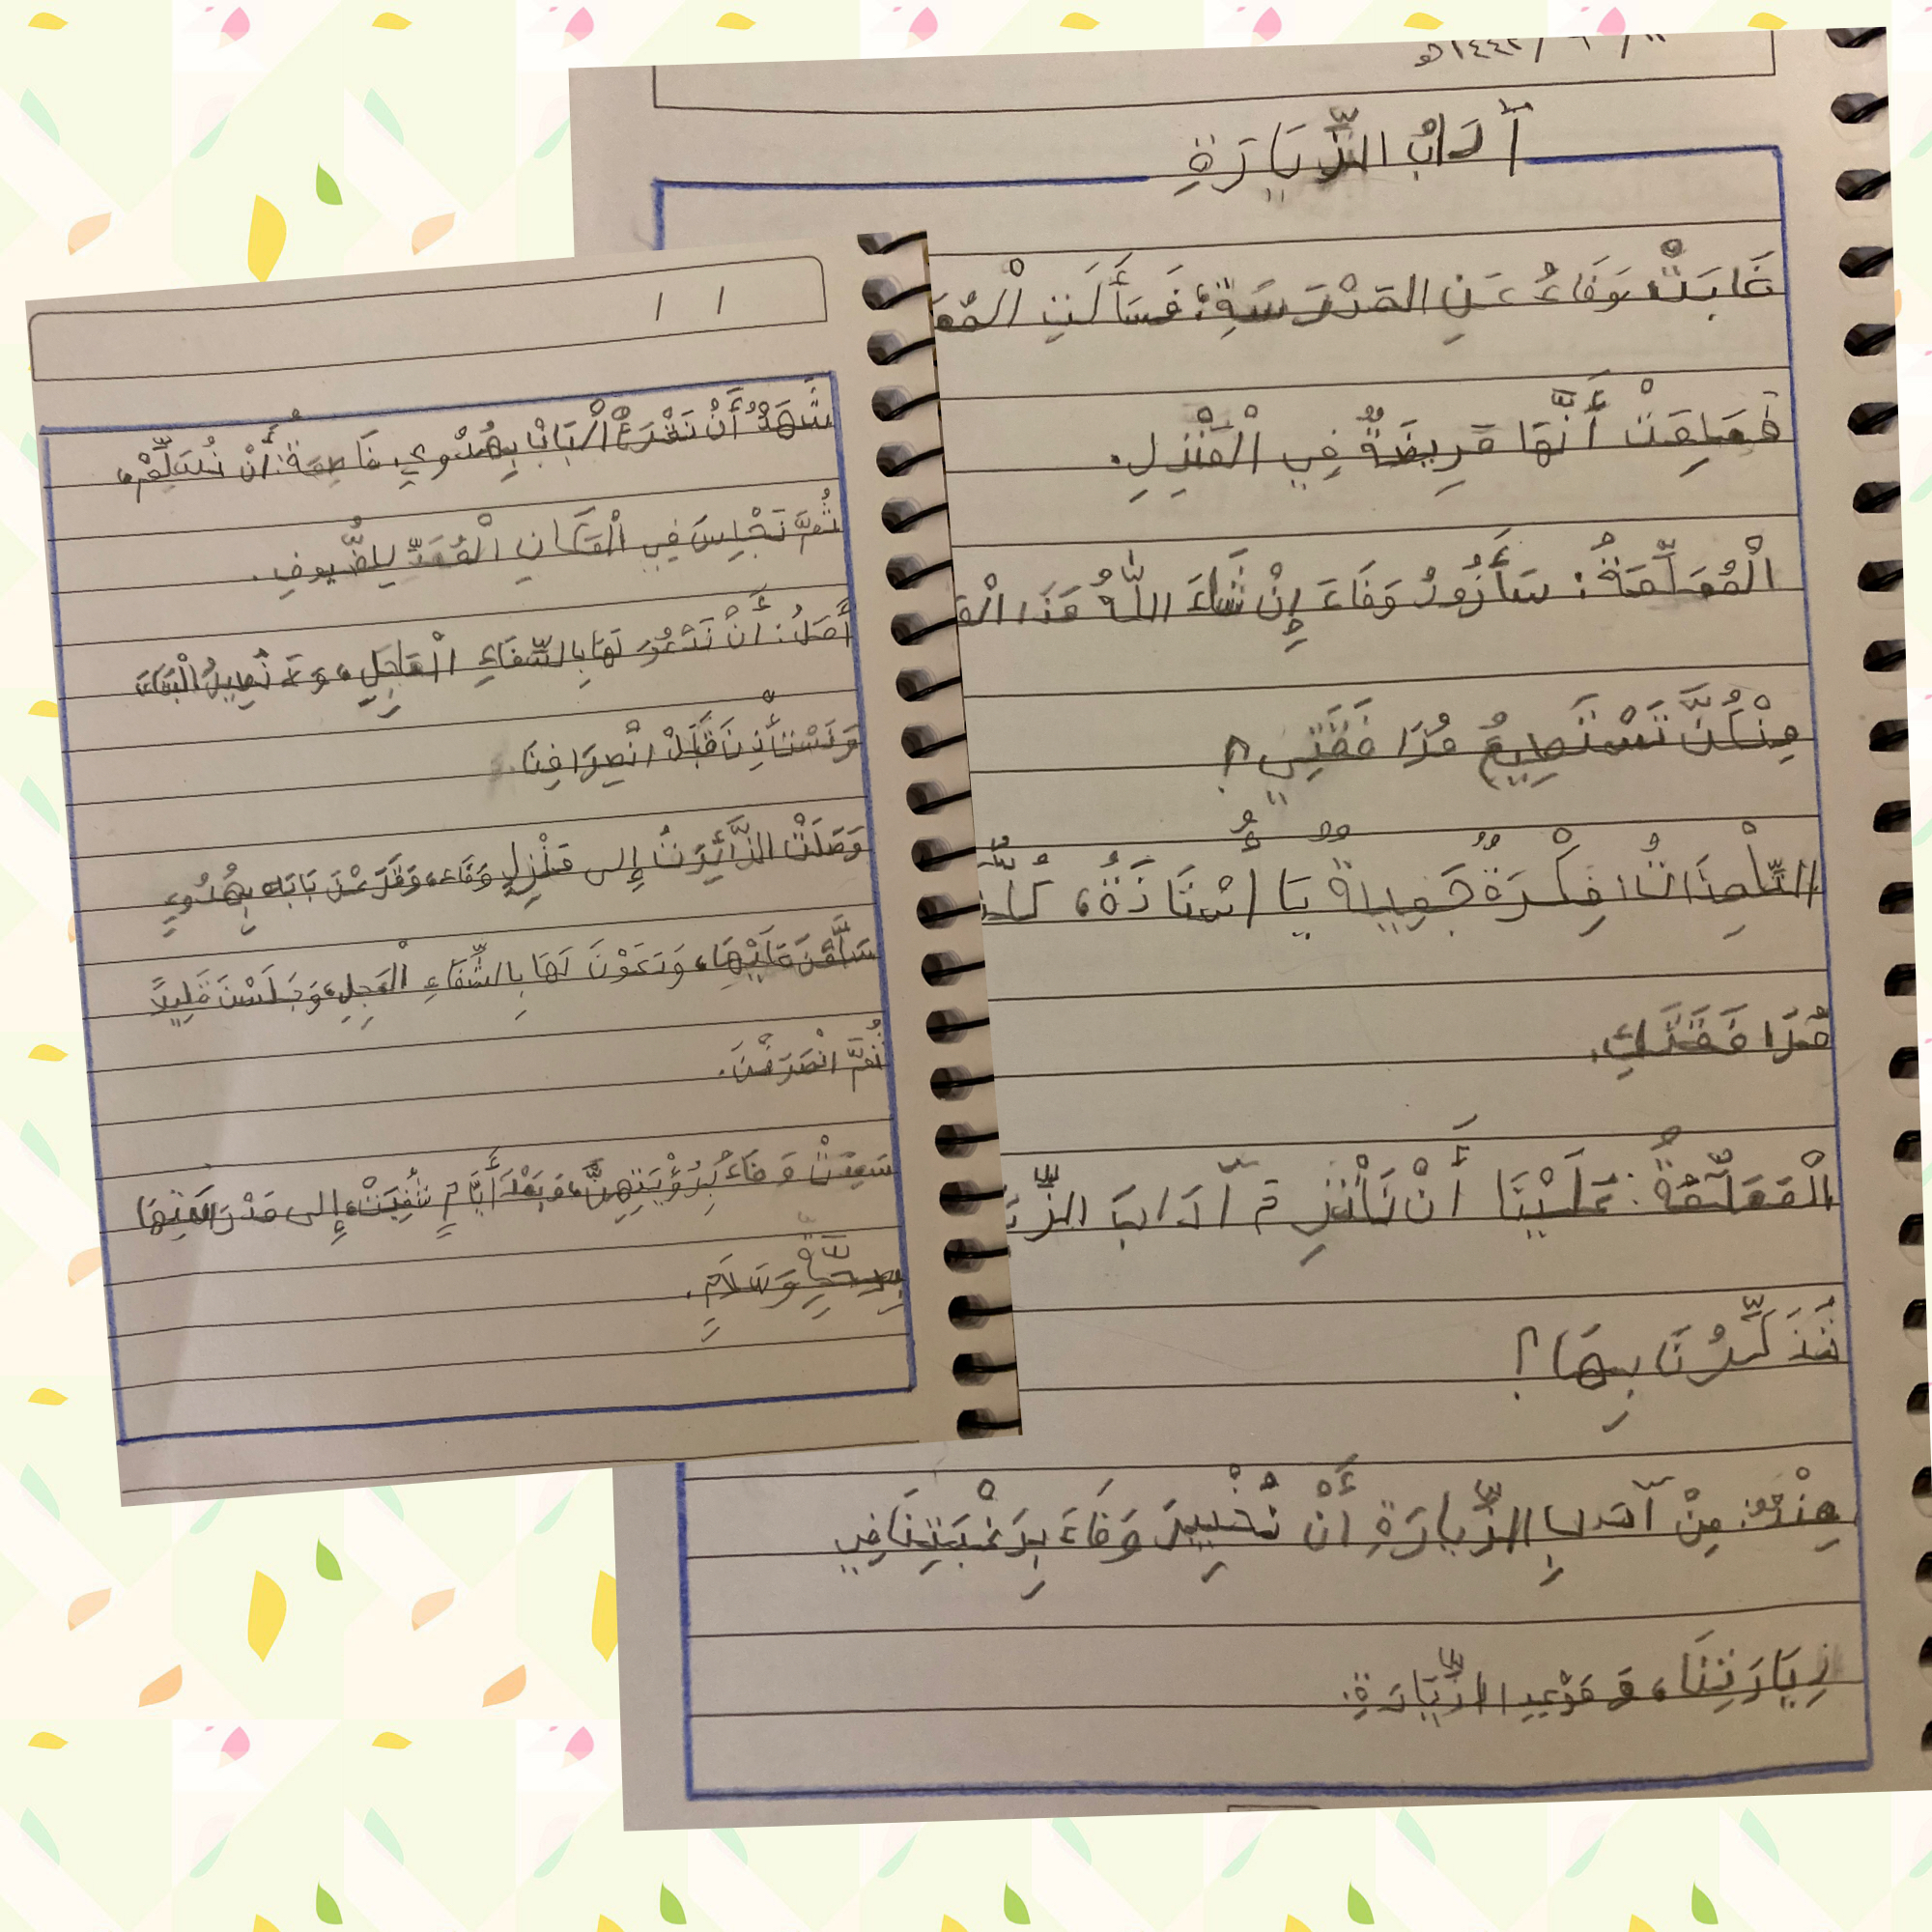 ١٤٤٢هـ
آدَابُ الزِّيَارَةِ
غَابَتْ وَفَاءُ عَنِ المَدْرَسَةِ؛ فَسَأَلَتِ الْمُعَ
فَعَلِمَتْ أَنَّهَا مَرِيضَةٌ فِي الْمَنْزِلِ.
الْمُعَلِّمَةُ: سَأَزُورُ وَفَاءَ إِنْ شَاءَ اللَّهُ هَذَا الْمَ
مِنْكُنَّ تَسْتَطِيعُ مُرَافَقَتِي؟
التِّلْمِذَاتُ: فِكْرَةٌ جَمِيلَةٌ يَا أُسْتَاذَةُ، كُلُّنَ
مُرَافَقَتَكِ.
الْمُعَلِّمَةُ: عَلَيْنَا أَنْ نَلْتَزِمَ آدَابَ الزِّيَ
تُذَكِّرُنَا بِهَا؟
هِنْدُ: مِنْ آدَابِ الزِّيَارَةِ أَنْ نُخْبِرَ وَفَاءَ بِرَغْبَتِنَا فِي
زِيَارَتِنَا، وَمَوْعِدِ الزِّيَارَةِ.
/ /
شَهْدُ: أَنْ نَقْرَعَ الْبَابَ بِهُدُوءٍ فَاطِمَةُ: أَنْ نُسَلِّمَ،
ثُمَّ نَجْلِسَ فِي الْمَكَانِ الْمُعَدِّ لِلضُّيوفِ.
أَمَلُ: أَنْ نَدْعُوَ لَهَا بِالشِّفَاءِ الْعَاجِلِ، وَلَا نُطِيلُ الْبَقَاءَ
وَنَسْتَأْذِنَ قَبْلَ انْصِرَافِنَا.
وَصَلَتْ الزَّائِرَتُ إِلى مَنْزِلِ وَفَاء، وَقَرَعْنَ بَابَه بِهُدُوءٍ
سَلَّمْنَ عَلَيْهَا، وَدَعَوْنَ لَهَا بِالشِّفَاءِ الْعَجِلِ، وَجَلَسْنَ قَلِيلًا
ثُمَّ انْصَرَفْنَ.
سَعِدَتْ وَفَاءُ بِرُؤْيَتِهِنَّ، وَبَعْدَ أَيَّامٍ شُفِيَتْ، إِلى مَدْرَسَتِهَا
بِصِحَّةٍ وَسَلَامٍ.